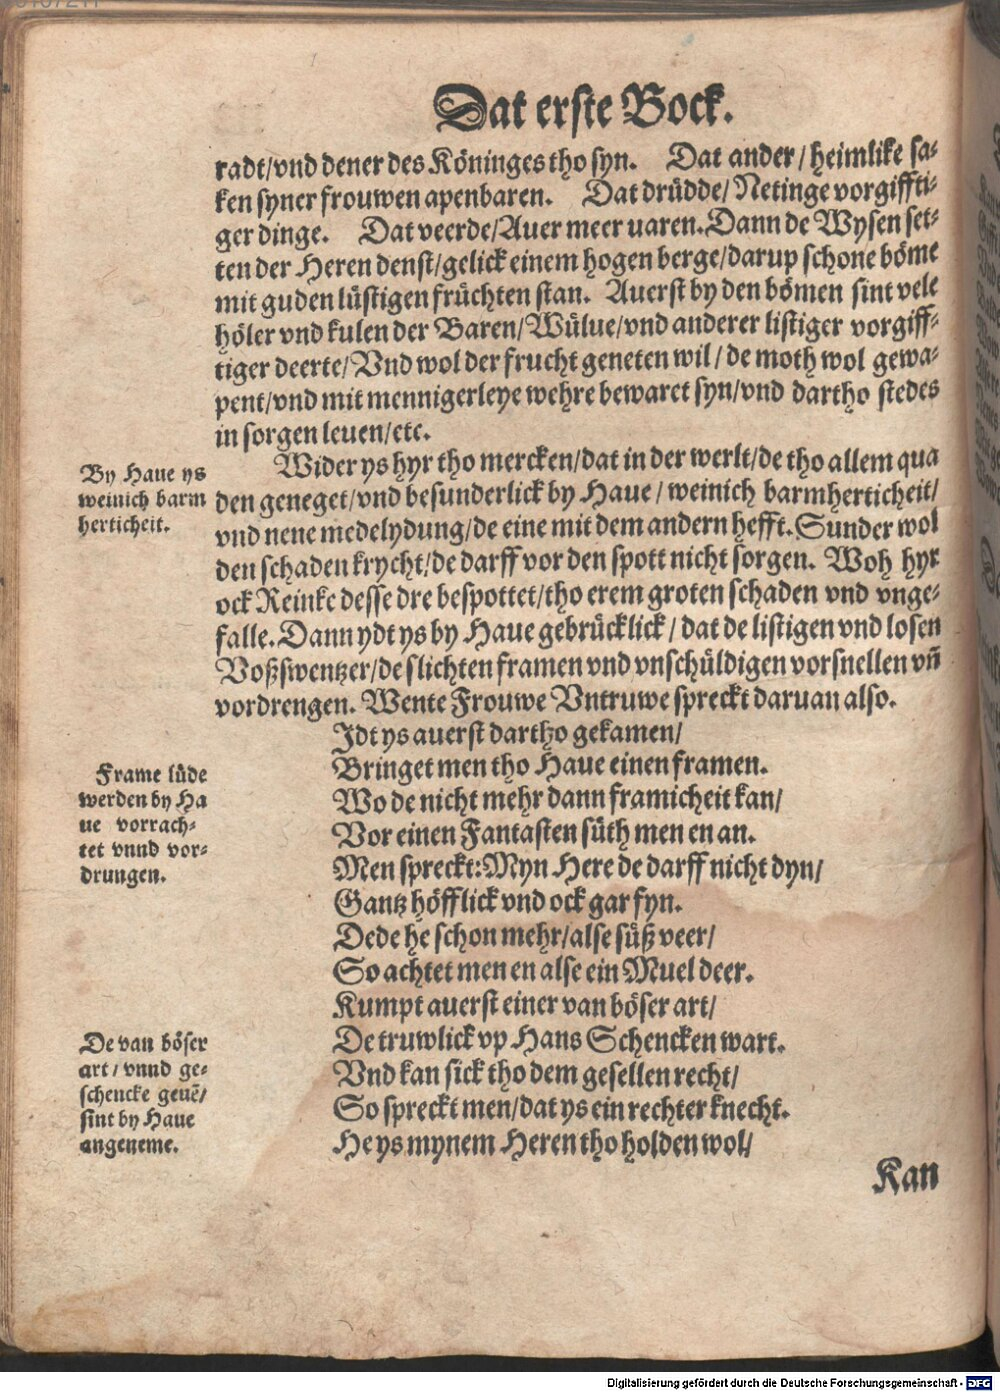 Dat erste Bock.
radt/vnd dener des Köninges tho syn. Dat ander/heimlike sa-
ken syner frouwen apenbaren. Dat drüdde/Netinge vorgiffti-
ger dinge. Dat veerde/Auer meer uaren. Dann de Wysen set-
ten der Heren denst/gelick einem hogen berge/darup schone böme
mit guden lüstigen früchten stan. Auerst by den bömen sint vele
höler vnd kulen der Baren/Wülue/vnd anderer listiger vorgiff-
tiger deerte/Vnd wol der frucht geneten wil/de moth wol gewa-
pent/vnd mit mennigerleye wehre bewaret syn/vnd dartho stedes
in sorgen leuen/etc.
By Haue ys
weinich barm
herticheit.
Wider ys hyr tho mercken/dat in der werlt/de tho allem qua
den geneget/vnd besunderlick by Haue/weinich barmherticheit/
vnd nene medelydung/de eine mit dem andern hefft. Sunder wol
den schaden krycht/de darff vor den spott nicht sorgen. Woh hyr
ock Reinke desse dre bespottet/tho erem groten schaden vnd vnge-
falle. Dann ydt ys by Haue gebrücklick/dat de listigen vnd losen
Voßswentzer/de slichten framen vnd vnschüldigen vorsnellen vñ
vordrengen. Wente Frouwe Vntruwe spreckt daruan also.
Idt ys auerst dartho gekamen/
Bringet men tho Haue einen framen.
Wo de nicht mehr dann framicheit kan/
Vor einen Fantasten süth men en an.
Men spreckt: Myn Here de darff nicht dyn/
Gantz höfflick vnd ock gar fyn.
Dede he schon mehr/alse süß veer/
So achtet men en alse ein Muel deer.
Kumpt auerst einer van böser art/
De truwlick vp Hans Schencken wart.
Vnd kan sick tho dem gesellen recht/
So spreckt men/dat ys ein rechter knecht.
He ys mynem Heren tho holden wol/
Frame lüde
werden by Ha
ue vorrach-
tet vnnd vor-
drungen.
De van böser
art/vnnd ge-
schencke geuē/
sint by Haue
angeneme.
Kan
Digitalisierung gefördert durch die Deutsche Forschungsgemeinschaft - DFG